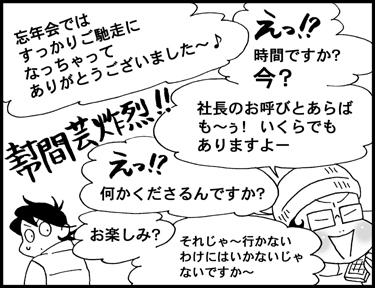 忘年会では
すっかりご馳走に
なっちゃって
ありがとうございました〜♪
えっ!?
時間ですか?
今?
社長のお呼びとあらば
も〜ぅ! いくらでも
ありますよー
幇間芸炸烈!!
えっ!?
何かくださるんですか?
お楽しみ?
それじゃ〜行かない
わけにはいかないじゃ
ないですか〜